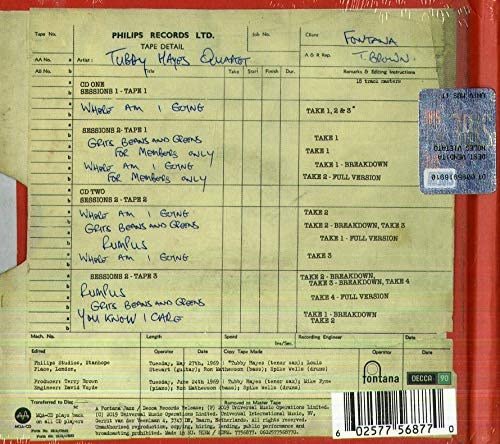 Tape No.
PHILIPS RECORDS LTD.
Job No.
Client
FONTANA
TAPE DETAIL
AA No.
Artist:
TUBBY HAYES QUARTET
A & R Rep.
T. BROWN.
Alt No.
Title
Take
Start
Finish
Dur.
Remarks & Editing Instructions
15 track masters
CD ONE
SESSIONS 1 - TAPE 1
WHERE AM I GOING
TAKE 1, 2 & 3*
SESSIONS 2 - TAPE 1
GRITS BEANS AND GREENS
TAKE 1
FOR MEMBERS ONLY
TAKE 1
WHERE AM I GOING
TAKE 1 - BREAKDOWN
FOR MEMBERS ONLY
TAKE 2 - FULL VERSION
CD TWO
SESSIONS 2 - TAPE 2
WHERE AM I GOING
TAKE 2
GRITS BEANS AND GREENS
TAKE 2 - BREAKDOWN, TAKE 3
RUMPUS
TAKE 1 - FULL VERSION
WHERE AM I GOING
TAKE 3
SESSIONS 2 - TAPE 3
TAKE 2 - BREAKDOWN,
RUMPUS
TAKE 3 - BREAKDOWN, TAKE 4
GRITS BEANS AND GREENS
TAKE 4 - FULL VERSION
YOU KNOW I CARE
TAKE 1 - BREAKDOWN, TAKE 2
Mach. No.
Length
Speed
Recording Engineer
Ins/Sec.
Edited
Operator
Copy Tape Made
Operator
Philips Studios, Stanhope
Place, London,
Tuesday, May 27th, 1969
*Tubby Hayes (tenor sax); Louis
Stewart (guitar); Ron Mathewson (bass); Spike Wells (drums)
Producer: Terry Brown
Engineer: David Voyde
Tuesday, June 24th 1969
Tubby Hayes (tenor sax); Mike Pyne
(piano); Ron Mathewson (bass); Spike Wells (drums)
Transferred to Disc
Removed as Master Tape
MQA-CD
MQA-CD plays back
on all CD players
A Fontana/Jazz / Decca Records Release; (P) 2019 Universal Music Operations Limited.
(C) 2019 Universal Music Operations Limited.
fontana
DECCA 90
6 02577 56877 0